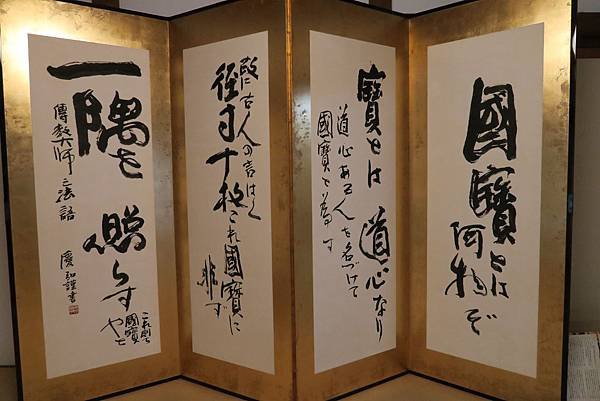 國寶とは
何物ぞ
寶とは道心なり
道心ある人を名づけて
國寶と為す
故に古人の言はく
径寸十枚これ國寶に
非ず
一隅を
照らす
これ則ち
國寶なりと
傳教大師之法語
謹書